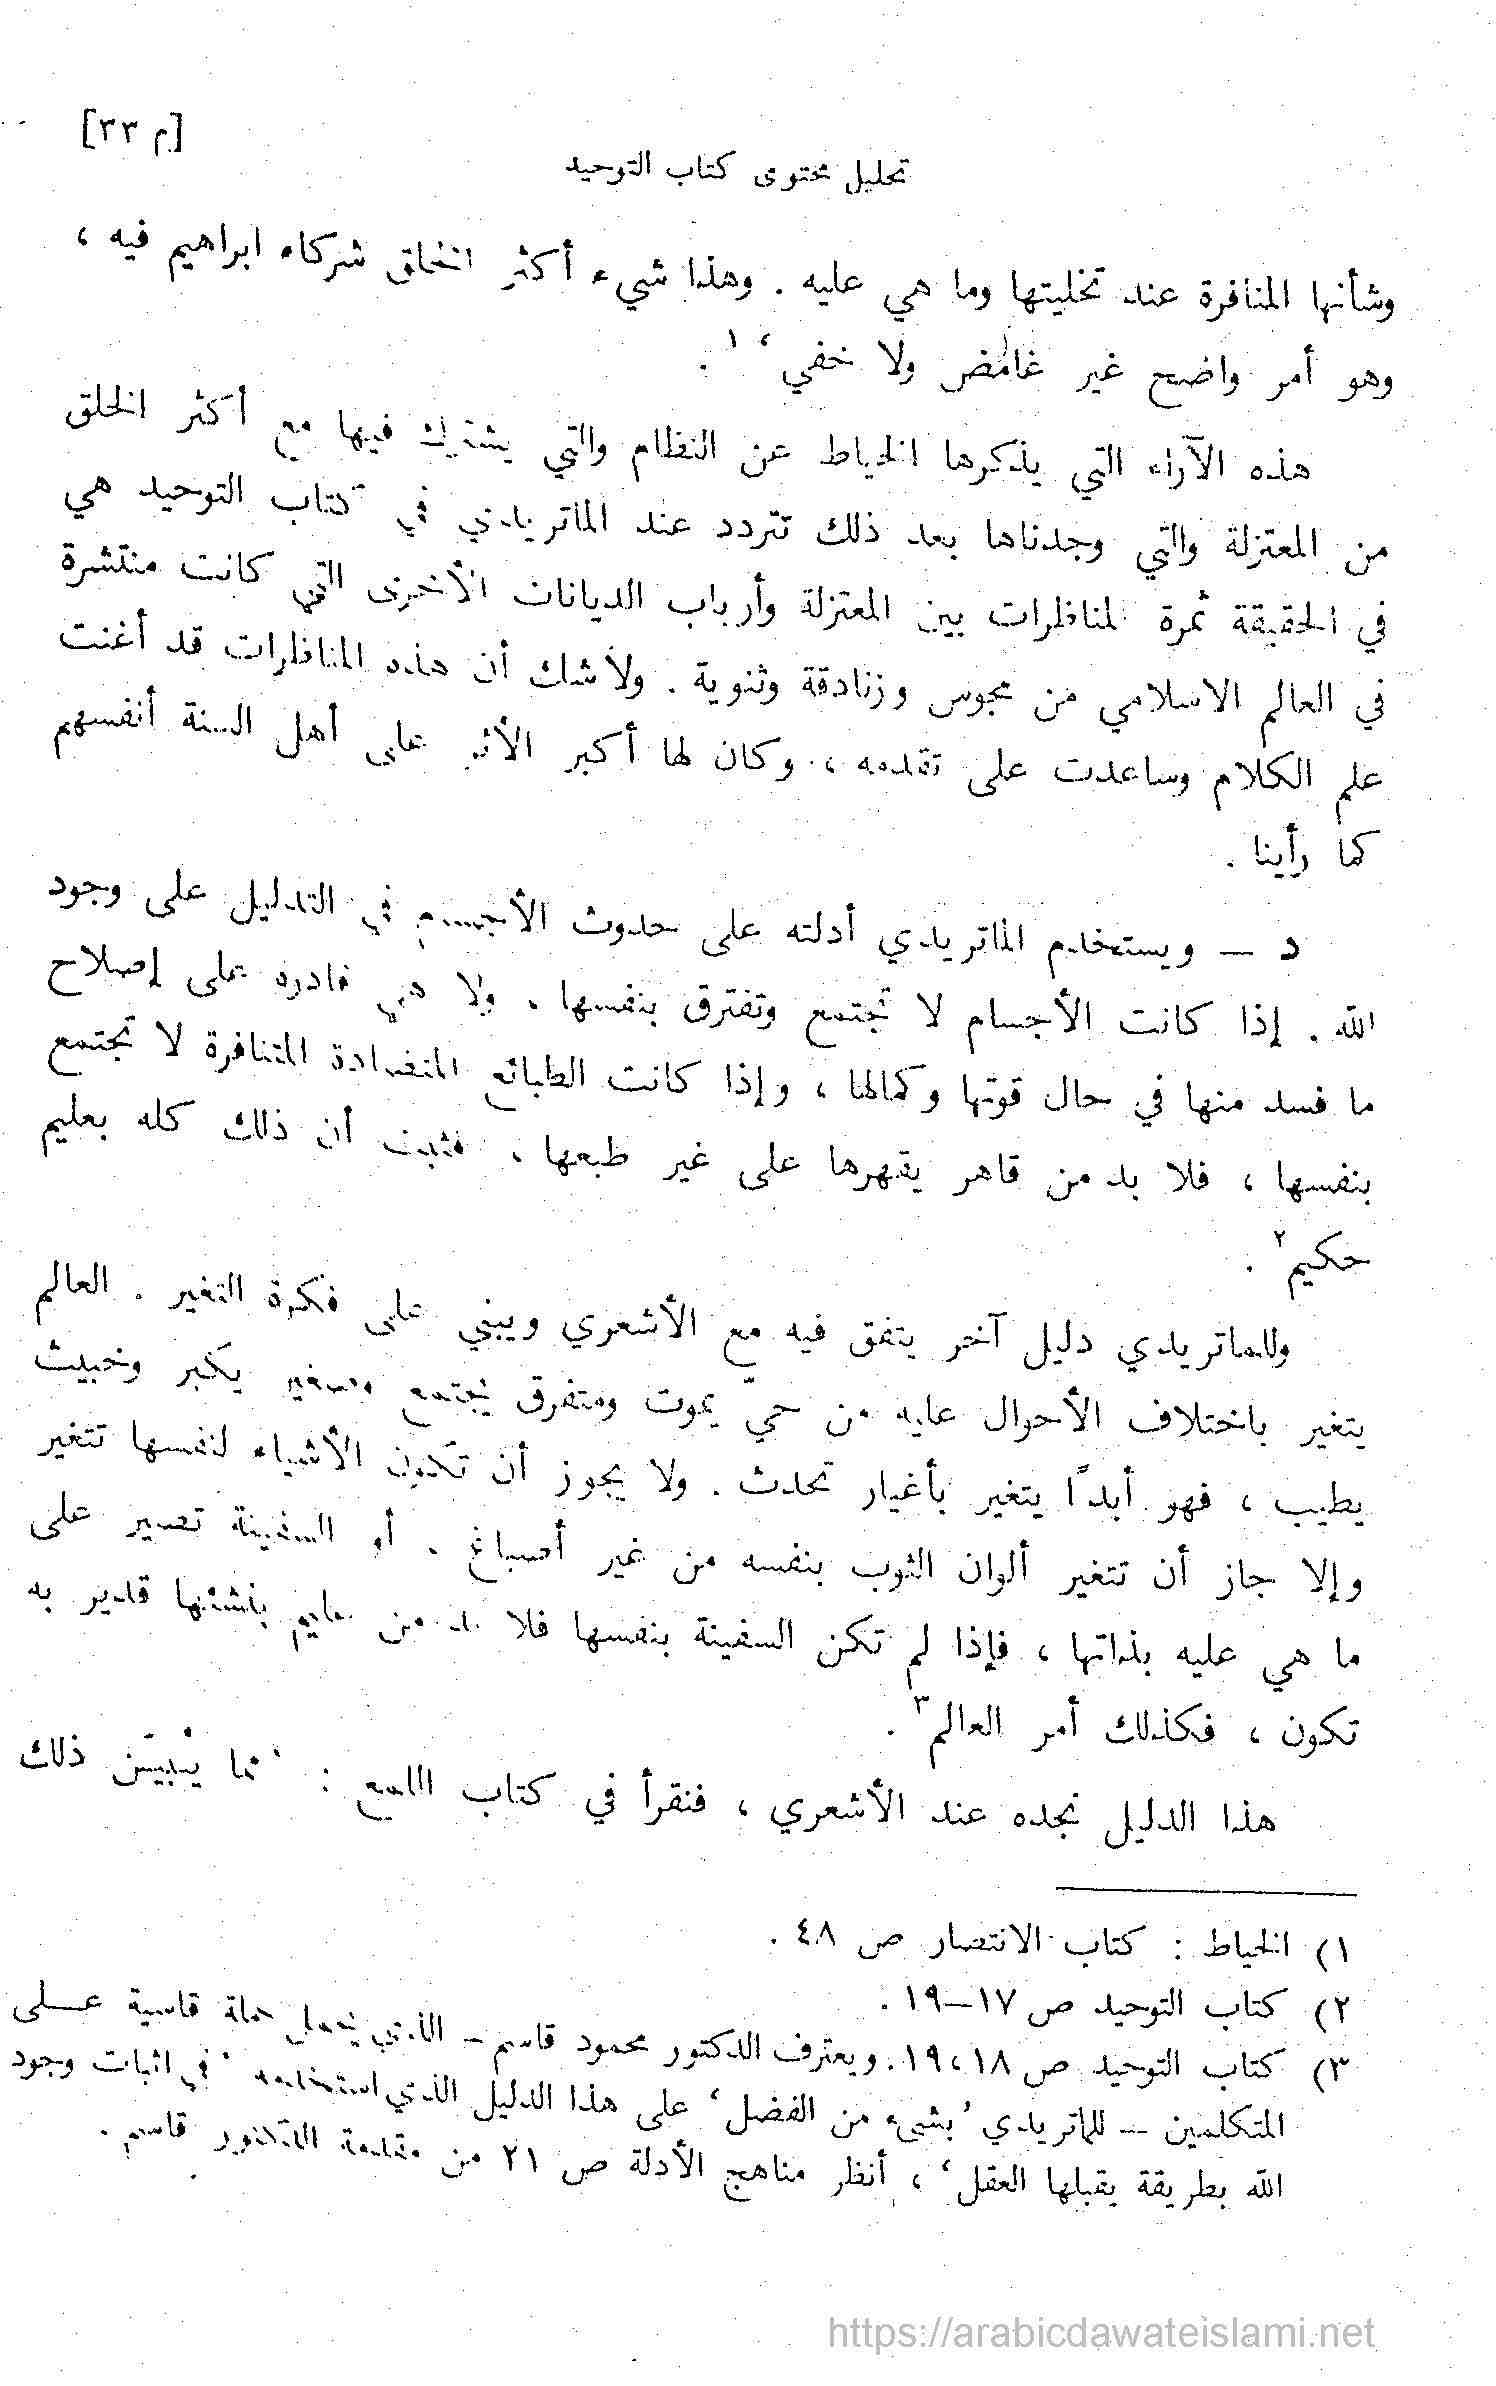 [م ٣٣]
تحليل محتوى كتاب التوحيد
وشأنها المنافرة عند تخليتها وما هي عليه . وهذا شيء أكثر الخلق شركاء ابراهيم فيه ،
وهو أمر واضح غير غامض ولا خفي‘ ١ .
هذه الآراء التي يذكرها الخياط عن النظام والتي يشترك فيها مع أكثر الخلق
من المعتزلة والتي وجدناها بعد ذلك تتردد عند الماتريدي في كتاب التوحيد هي
في الحقيقة ثمرة لمناظرات بين المعتزلة وأرباب الديانات الأخرى التي كانت منتشرة
في العالم الاسلامي من مجوس وزنادقة وثنوية . ولاشك أن هذه المناظرات قد أغنت
علم الكلام وساعدت على تقدمه ، وكان لها أكبر الأثر على أهل السنة أنفسهم
كما رأينا .
د – ويستخدم الماتريدي أدلته على حدوث الأجسام في التدليل على وجود
الله . إذا كانت الأجسام لا تجتمع وتفترق بنفسها ، ولا هي قادره على إصلاح
ما فسد منها في حال قوتها وكمالها ، وإذا كانت الطبائع المتضادة المتنافرة لا تجتمع
بنفسها ، فلا بد من قاهر يقهرها على غير طبعها ، فثبت أن ذلك كله بعليم
حكيم٢ .
وللماتريدي دليل آخر يتفق فيه مع الأشعري ويبني على فكرة التغير . العالم
يتغير باختلاف الأحوال عليه من حيّ يموت ومتفرق يجتمع وصغير يكبر وخبيث
يطيب ، فهو أبدًا يتغير بأغيار تحدث . ولا يجوز أن تكون الأشياء لنفسها تتغير
وإلا جاز أن تتغير ألوان الثوب بنفسه من غير أصباغ . أو السفينة تصير على
ما هي عليه بذاتها ، فإذا لم تكن السفينة بنفسها فلا بد من عليم ينشئها قدير به
تكون ، فكذلك أمر العالم٣ .
هذا الدليل نجده عند الأشعري ، فنقرأ في كتاب اللمع : ‘ مما يُبيّن ذلك
١) الخياط : كتاب الانتصار ص ٤٨ .
٢) كتاب التوحيد ص ١٧–١٩ .
٣) كتاب التوحيد ص ١٨،١٩. ويعترف الدكتور محمود قاسم – الذي يحمل حملة قاسية عــلى
المتكلمين – للماتريدي ’بشيء من الفضل‘ على هذا الدليل الذي استخدمه ’في اثبات وجود
الله بطريقة يقبلها العقل‘ ، أنظر مناهج الأدلة ص ٢١ من مقدمة الدكتور قاسم .
https://arabicdawateislami.net